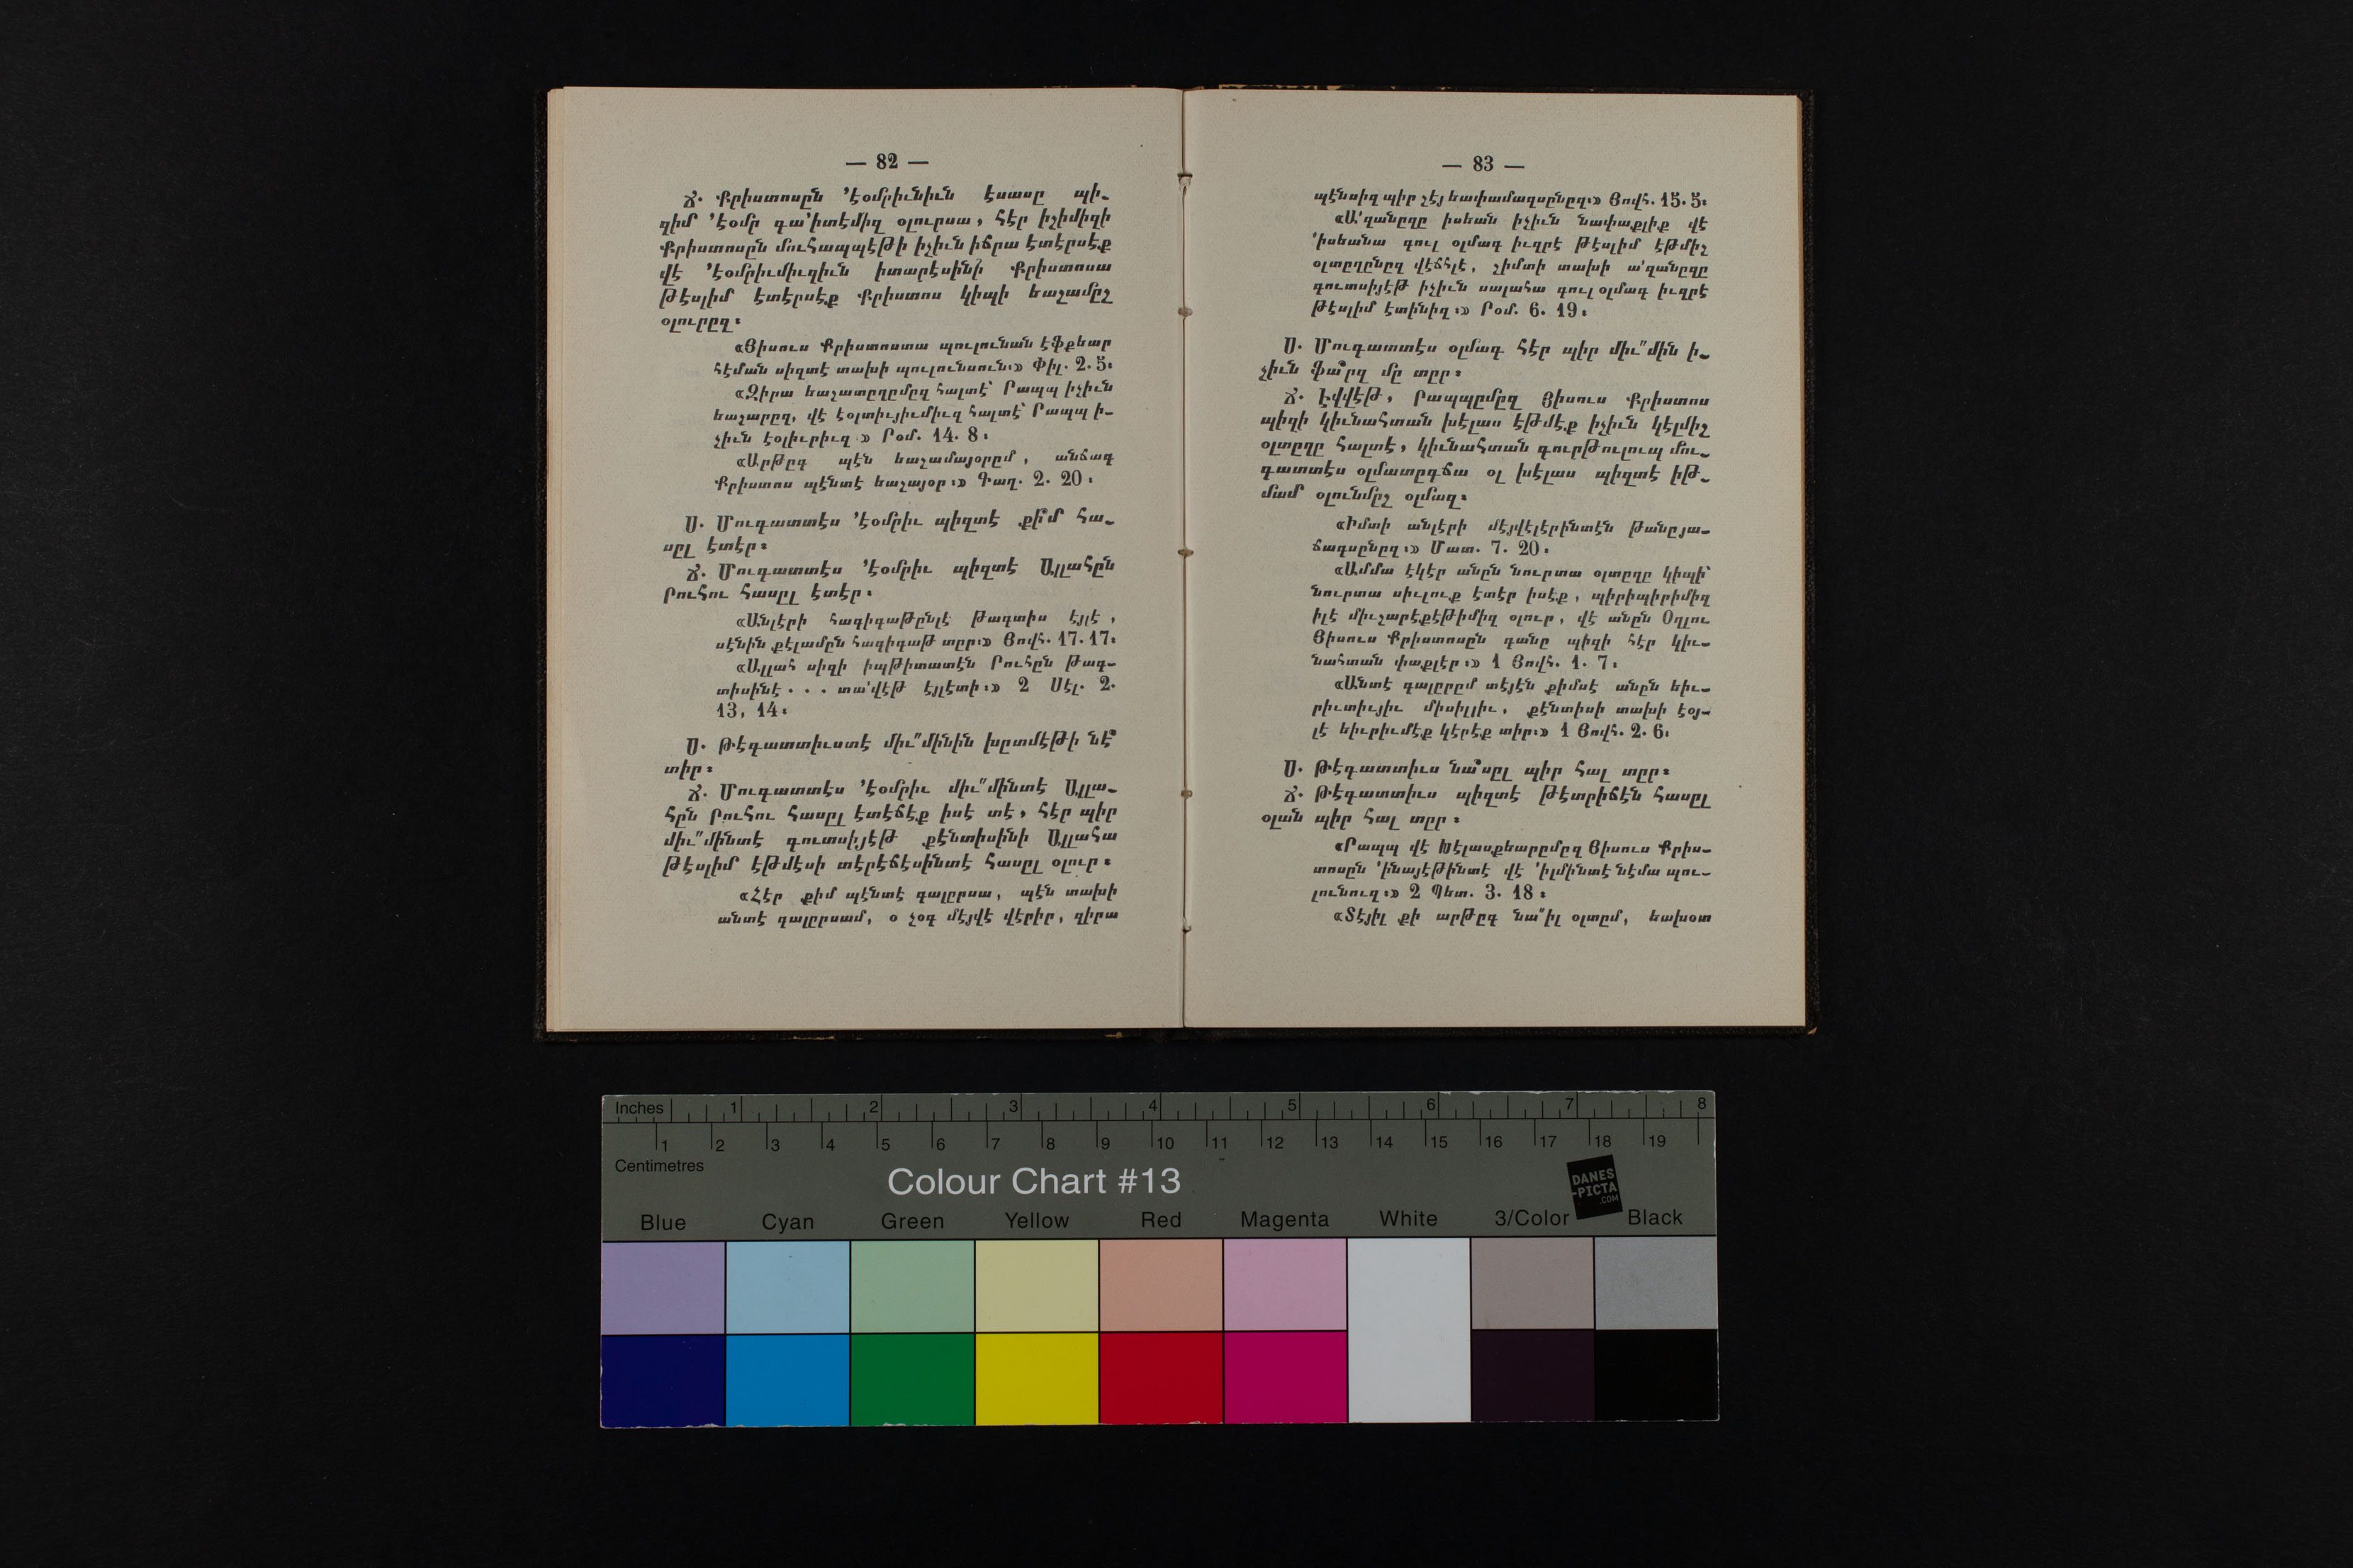 — 82 —
Ճ. Քրիստոսըն ՚էօմրիւնիւն էսասը պի-
զիմ ՚էօմր գա՚իտէմիզ օլուրսա, հէր իշիմիզի
Քրիստոսըն մուհապպէթի իչիւն իճրա էտէրսէք
վէ ՚էօմրիւմիւզիւն իտարէսինի Քրիստոսա
թէսլիմ էտէրսէք Քրիստոս կիպի եաշամըշ
օլուրըզ։
«Յիսուս Քրիստոստա պուլունան էֆքեար
հէման սիզտէ տախի պուլունսուն։» Փիլ. 2. 5։
«Զիրա եաշատըղըմըզ հալտէ՝ Րապպ իչիւն
եաշարըզ, վէ էօլտիւյիւմիւզ հալտէ՝ Րապպ ի-
չիւն էօլիւրիւզ։» Րօմ. 14. 8։
«Արթըգ պէն եաշամայօրըմ, անճագ
Քրիստոս պէնտէ եաշայօր։» Գաղ. 2. 20։
Ս. Մուգատտէս ՚էօմրիւ պիզտէ քի՞մ հա-
սըլ էտէր։
Ճ. Մուգատտէս ՚էօմրիւ պիզտէ Ալլահըն
Րուհու հասըլ էտէր։
«Անլէրի հագիգաթընլէ թագտիս էյլէ,
սէնին քէլամըն հագիգաթ տըր։» Յովհ. 17. 17։
«Ալլահ սիզի իպթիտատէն Րուհըն թագ-
տիսինէ... տա՚վէթ էյլէտի։» 2 Սէլ. 2.
13, 14։
Ս. Թէգատտիւստէ միւ՚՚մինին խըտմէթի նէ՞
տիր։
Ճ. Մուգատտէս ՚էօմրիւ միւ՚՚մինտէ Ալլա-
հըն Րուհու հասըլ էտէճէք իսէ տէ, հէր պիր
միւ՚՚մինտէ գուտսիյէթ քէնտիսինի Ալլահա
թէսլիմ էթմէսի տէրէճէսինտէ հասըլ օլուր։
«Հէր քիմ պէնտէ գալըրսա, պէն տախի
անտէ գալըրսամ, օ չօգ մէյվէ վէրիր, զիրա
— 83 —
պէնսիզ պիր շէյ եափամազսընըզ։» Յովհ. 15. 5։
«Ա՚զանըզը իսեան իչիւն նափաքլիք վէ
՚իսեանա գուլ օլմագ իւզրէ թէսլիմ էթմիշ
օլտըղընըզ վէճհլէ, շիմտի տախի ա՚զանըզը
գուտսիյէթ իչիւն սալահա գուլ օլմագ իւզրէ
թէսլիմ էտինիզ։» Րօմ. 6. 19։
Ս. Մուգատտէս օլմագ հէր պիր միւ՚՚մին ի-
չիւն ֆա՞րզ մը տըր։
Ճ. Էվվէթ, Րապպըմըզ Յիսուս Քրիստոս
պիզի կիւնահտան խէլաս էթմէք իչիւն կէլմիշ
օլտըղը հալտէ, կիւնահտան գուրթուլուպ մու-
գատտէս օլմատըգճա օլ խէլաս պիզտէ իթ-
մամ օլունմըշ օլմազ։
«Իմտի անլէրի մէյվէլէրինտէն թանըյա-
ճագսընըզ։» Մատ. 7. 20։
«Ամմա էկէր անըն նուրտա օլտըղը կիպի՝
նուրտա սիւլուք էտէր իսէք, պիրիպիրիմիզ
իլէ միւշարէքէթիմիզ օլուր, վէ անըն Օղլու
Յիսուս Քրիստոսըն գանը պիզի հէր կիւ-
նահտան փաքլէր։» 1 Յովհ. 1. 7։
«Անտէ գալըրըմ տէյէն քիմսէ անըն եիւ-
րիւտիւյիւ միսիլլիւ, քէնտիսի տախի էօյ-
լէ եիւրիւմէք կէրէք տիր։» 1 Յովհ. 2. 6։
Ս. Թէգատտիւս նա՞սըլ պիր հալ տըր։
Ճ. Թէգատտիւս պիզտէ թէտրիճէն հասըլ
օլան պիր հալ տըր։
«Րապպ վէ Խէլասքեարըմըզ Յիսուս Քրիս-
տոսըն ՚ինայէթինտէ վէ ՚իլմինտէ նէմա պու-
լունուզ։» 2 Պետ. 3. 18։
«Տէյիլ քի արթըգ նա՚՚իլ օլտըմ, եախօտ
Inches 1 2 3 4 5 6 7 8
1 2 3 4 5 6 7 8 9 10 11 12 13 14 15 16 17 18 19
Centimetres
Colour Chart #13
DANES
-PICTA
.COM
Blue Cyan Green Yellow Red Magenta White 3/Color Black